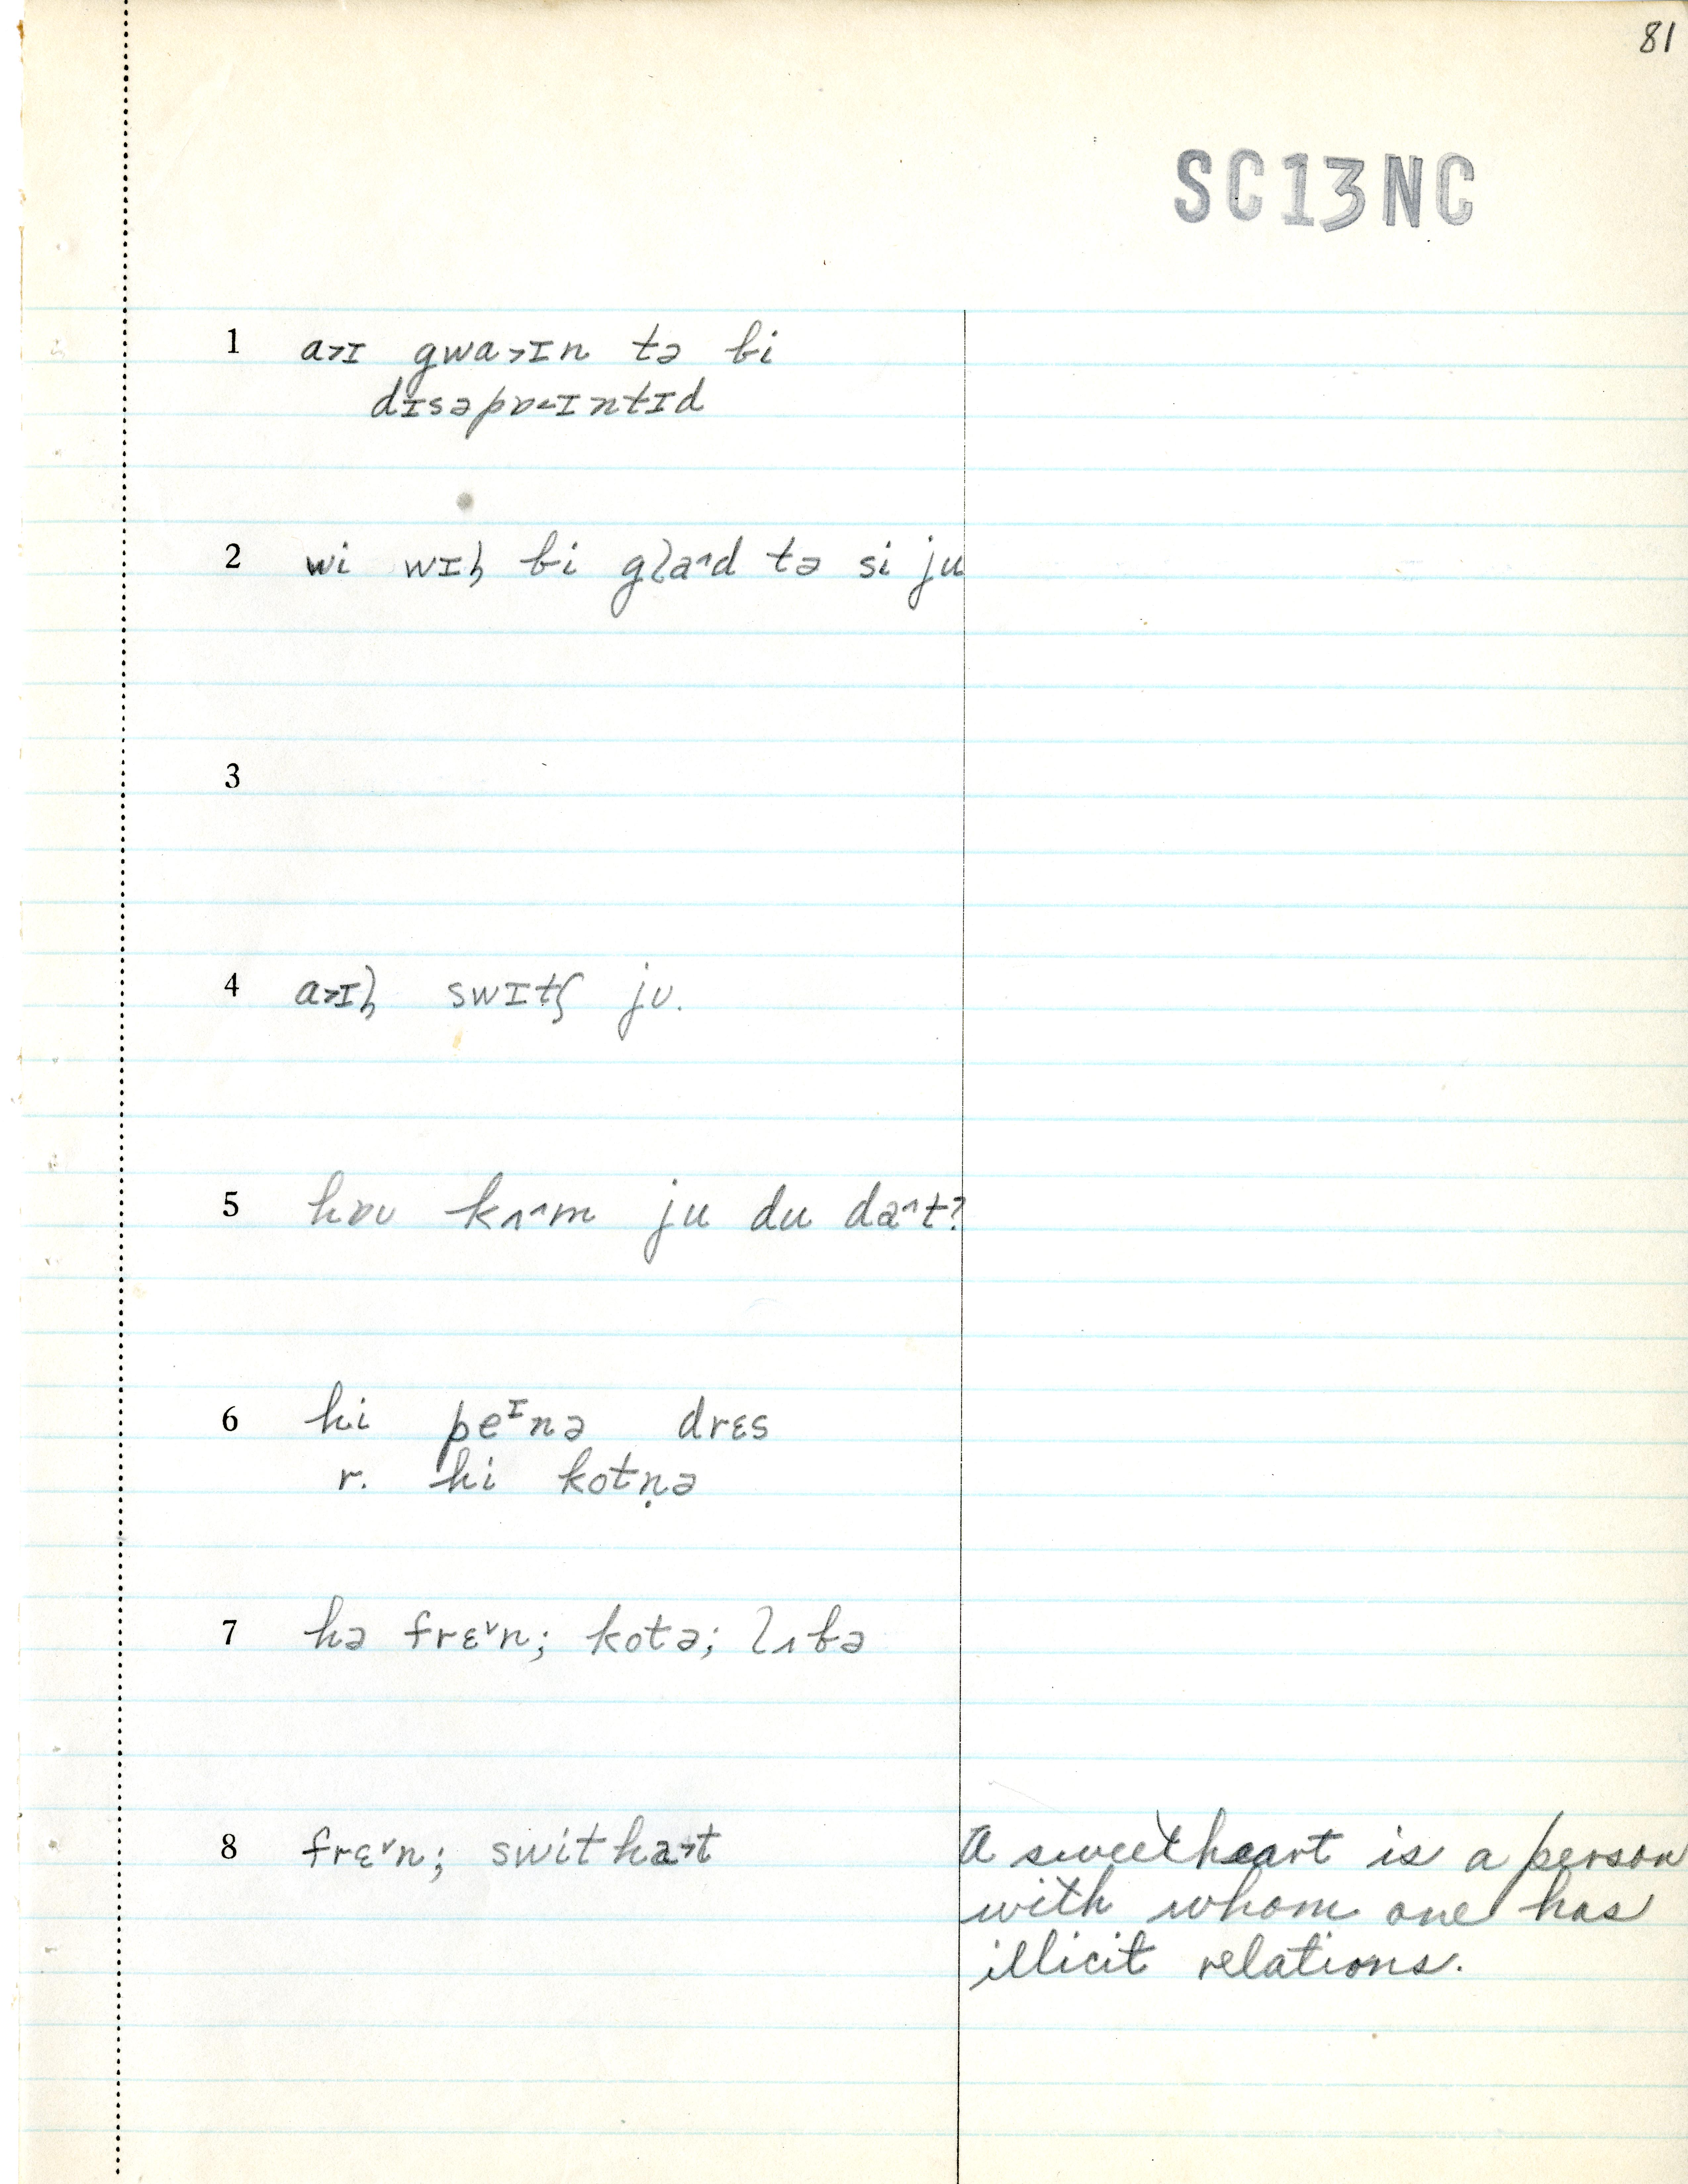 81
SC13NC
1 a˃ɪ gwa˃ɪn tə bi
dɪsəpɒ˂ɪntɪd
2 wi wɪl̥ bi gla˄d tə si ju
3
4 a˃ɪl̥ swɪtʃ jʊ.
5 hɒʊ kʌ˄m ju du da˄t?
6 hi peᶦnə drɛs
r. hi kotn̩ə
7 hə frɛ˅n; kotə; lʌbə
8 frɛ˅n; switha˃t
A sweetheart is a person
with whom one has
illicit relations.